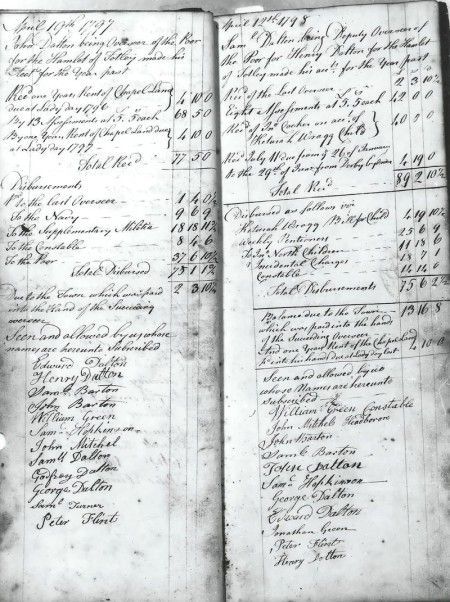 April 19th 1797
John Dalton being Overseer of the Poor
for the Hamlet of Totley made his
Acct for the Year past
Recd one Years Rent of Chapel Land
due at Lady day 1796 } 4 10 0
By 13 Assessments at 5. 5 each 68 5 0
By one Years Rent of Chapel Land due
at Lady day 1797 } 4 10 0
Total Recd 77 5 0
Disbursements
Pd to the last Overseer 1 4 0½
To the Navy 9 6 9
To the Supplementary Militia 18 18 11¾
To the Constable 8 4 6
To the Poor 37 6 10½
Total Disbursed 75 1 1¾
Due to the Town which was paid
into the Hand of the Succeeding
overseer 2 3 10¼
Seen and allowed by us whose
names are hereunto Subscribed
Edward Dalton
Henry Dalton
Saml Barton
John Barton
William Green
Saml Hopkinson
John Mitchel
Samll Dalton
Godfrey Dalton
George Dalton
Saml Turner
Peter Flint
April 12th 1798
Saml Dalton being Deputy Overseer of
the Poor for Henry Dalton for the Hamlet
of Totley made his acct for the Year past
Recd of the last Overseer 2 3 10¼
Eight Assessments at 5. 5 each 42 0 0
Recd of Jno on acct of
Keturah Wragg Child } 40 0 0
Recd July 11 due from ye 26 of January
to the 29th of June from Derby 4 19 0
Total Recd 89 2 10¼
Disbursed as follows viz
Keturah Wragg Bill for Child 4 19 10½
Weekly Pentioners 25 6 9
To Jno North Children 11 18 6
Incidental Charges 18 7 1
Constable 14 14 0
Total Disbursements 75 6 2½
Balance due to the Town 13 16 8
which was paid into the hands
of the Succeeding Overseer
And one Years Rent of the Chapel Land
pd into his hands due at Lady day last 4 10 0
Seen and allowed by us
whose Names are hereunto
Subscribed
William Green Constable
John Mitchel Headborow
John Barton
Saml Barton
John Dalton
Saml Hopkinson
George Dalton
Edward Dalton
Jonathan Green
Peter Flint
Henry Dalton